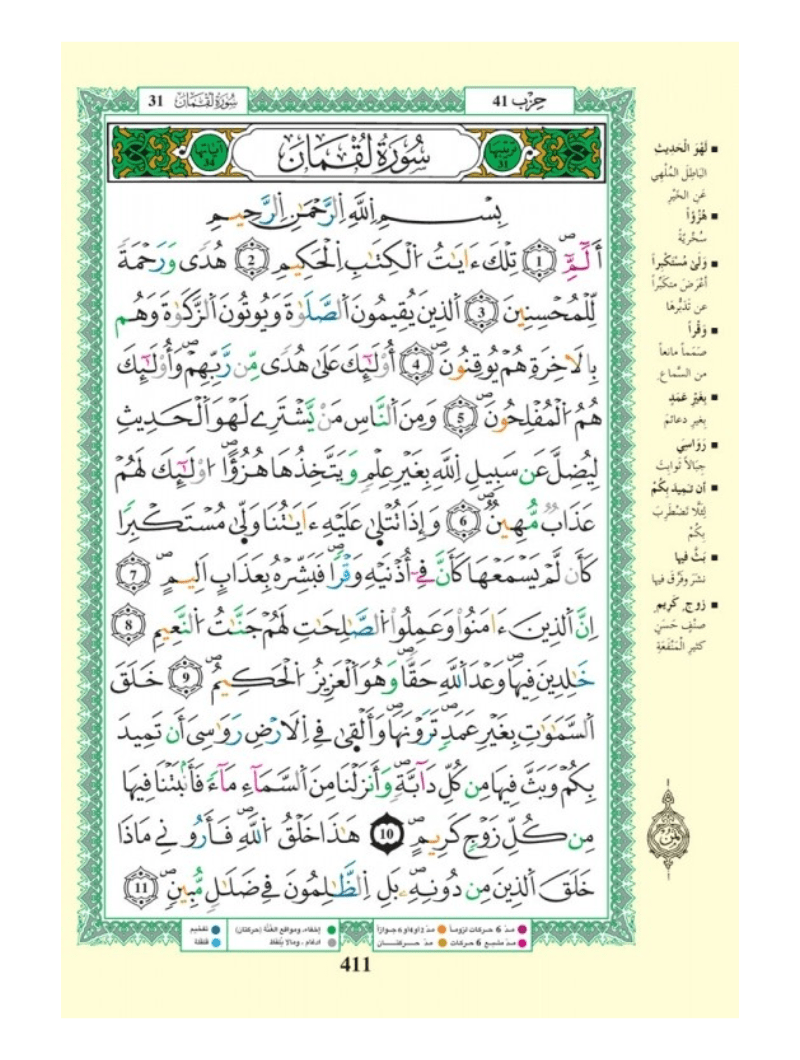 31 سُورَةُ لُقْمَان
حِزْب 41
سُورَةُ لُقْمَان
ترتيبها 31
آياتها
بِسْمِ اِ۬للَّهِ اِ۬لرَّحْمَٰنِ اِ۬لرَّحِيمِ
أَلَٓمِّٓۖ 1 تِلْكَ ءَايَٰتُ اُ۬لْكِتَٰبِ اِ۬لْحَكِيمِ 2 هُدىٗ وَرَحْمَةٗ
لِّلْمُحْسِنِينَ 3 اَ۬لذِينَ يُقِيمُونَ اَ۬لصَّلَوٰةَ وَيُوتُونَ اَ۬لزَّكَوٰةَ وَهُم
بِالَاخِرَةِ هُمْ يُوقِنُونَۖ 4 أُوْلَٰٓئِكَ عَلَىٰ هُدىٗ مِّن رَّبِّهِمْۖ وَأُوْلَٰٓئِكَ
هُمُ اُ۬لْمُفْلِحُونَۖ 5 وَمِنَ اَ۬لنَّاسِ مَنْ يَّشْتَرِے لَهْوَ اَ۬لْحَدِيثِ
لِيُضِلَّ عَن سَبِيلِ اِ۬للَّهِ بِغَيْرِ عِلْمٖ وَيَتَّخِذُهَا هُزُؤاًۖ ا۟وْلَٰٓئِكَ لَهُمْ
عَذَابٞ مُّهِينٞۖ 6 وَإِذَا تُتْلَىٰ عَلَيْهِ ءَايَٰتُنَا وَلَّىٰ مُسْتَكْبِراٗ
كَأَن لَّمْ يَسْمَعْهَا كَأَنَّ فِےٓ أُذْنَيْهِ وَقْراٗۖ فَبَشِّرْهُ بِعَذَابٍ اَلِيمٍۖ 7
اِنَّ اَ۬لذِينَ ءَامَنُواْ وَعَمِلُواْ اُ۬لصَّٰلِحَٰتِ لَهُمْ جَنَّٰتُ اُ۬لنَّعِيمِ 8
خَٰلِدِينَ فِيهَاۖ وَعْدَ اَ۬للَّهِ حَقّاٗۖ وَهُوَ اَ۬لْعَزِيزُ اُ۬لْحَكِيمُۖ 9 خَلَقَ
اَ۬لسَّمَٰوَٰتِ بِغَيْرِ عَمَدٖ تَرَوْنَهَاۖ وَأَلْقَىٰ فِے اِ۬لَارْضِ رَوَٰسِيَ أَن تَمِيدَ
بِكُمْ وَبَثَّ فِيهَا مِن كُلِّ دَآبَّةٖۖ وَأَنزَلْنَا مِنَ اَ۬لسَّمَآءِ مَآءٗ فَأَنۢبَتْنَا فِيهَا
مِن كُلِّ زَوْجٖ كَرِيمٍۖ 10 هَٰذَا خَلْقُ اُ۬للَّهِ فَأَرُونِے مَاذَا
خَلَقَ اَ۬لذِينَ مِن دُونِهِۦۖ بَلِ اِ۬لظَّٰلِمُونَ فِے ضَلَٰلٖ مُّبِينٖۖ 11
■ لَهْوَ الْحَدِيثِ
البَاطِلَ المُلْهِي
عَنِ الخَيْرِ
■ هُزُؤاً
سُخْرِيَّةً
■ وَلَّىٰ مُسْتَكْبِراً
أعْرَضَ متكَبِّراً
عن تَدَبُّرِهَا
■ وَقْراً
صَمَماً مانعاً
من السَّماع
■ بِغَيْرِ عَمَدٍ
بِغيرِ دعائمَ
■ رَوَاسِيَ
جِبَالاً ثَوابِتَ
■ أن تَمِيدَ بِكُمْ
لِئَلَّا تَضْطَرِبَ
بِكُمْ
■ بَثَّ فِيها
نشرَ وفَرَّقَ فيها
■ زوجٍ كَرِيمٍ
صنْفٍ حَسَنٍ
كثيرِ الْمَنْفَعَةِ
مدّ 6 حركات لزوماً مدّ 2 أو 4 أو 6 جوازاً
مدّ مشبع 6 حركات مدّ حركتان
إخفاء، ومواقع الغُنَّة (حركتان)
ادغام، وما لا يُلفَظ
تفخيم
قلقلة
411